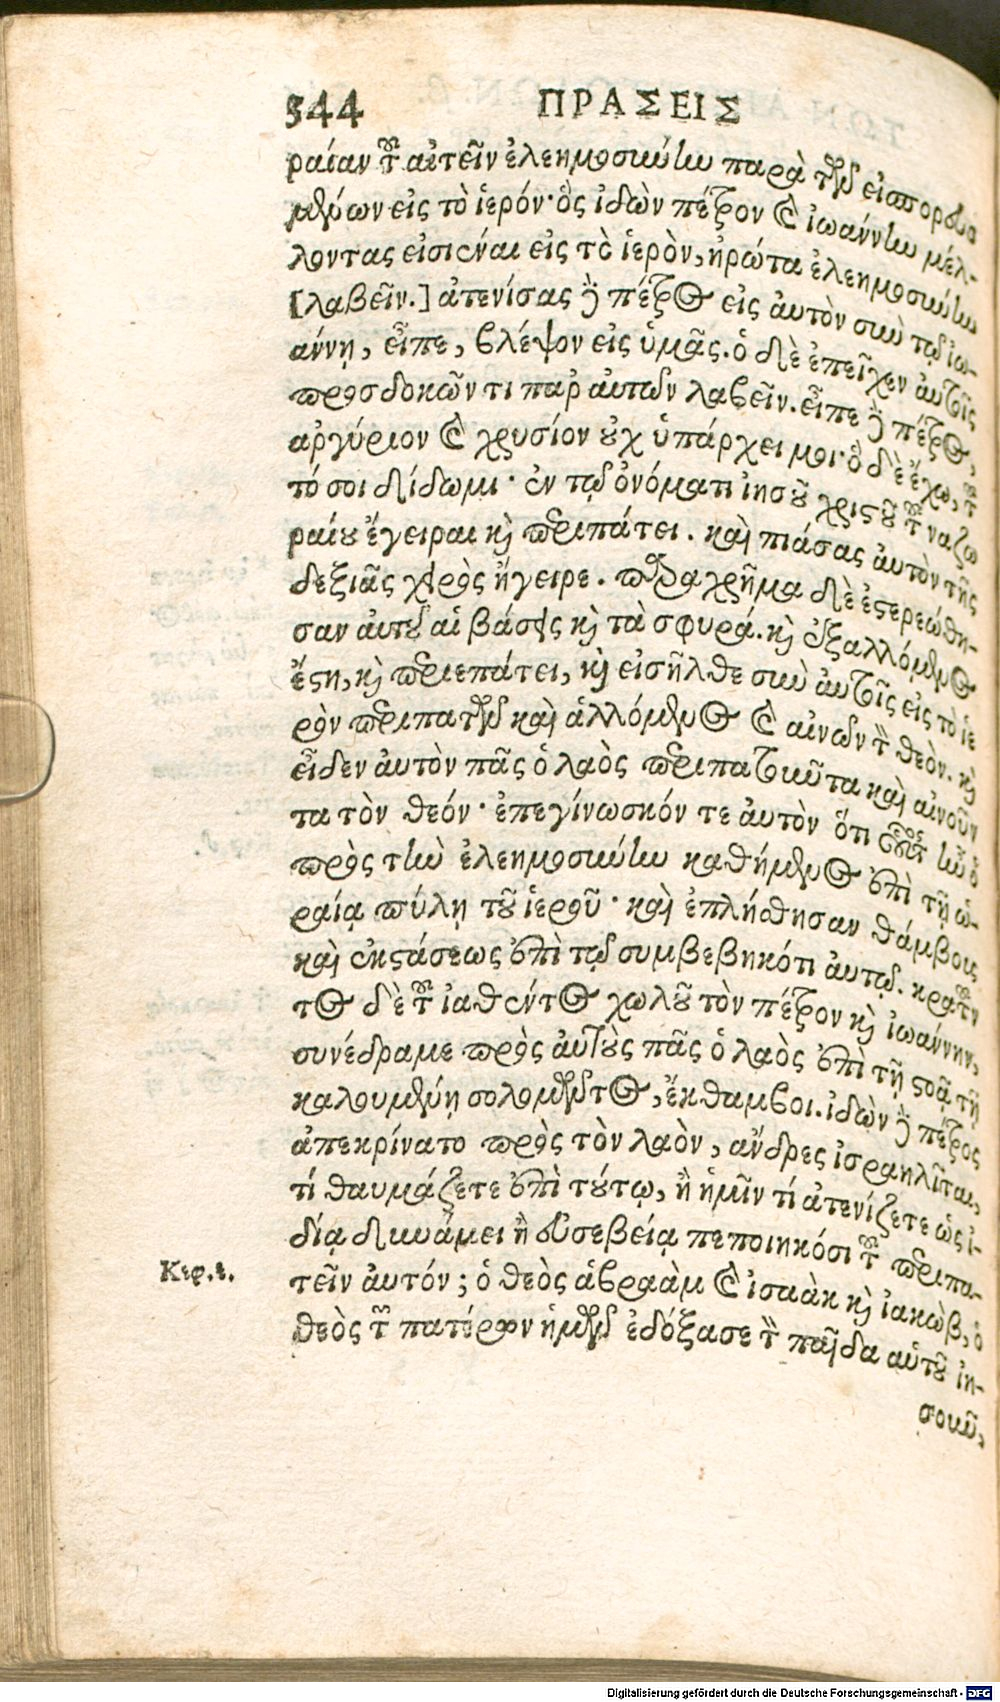 344 ΠΡΑΣΕΙΣ
ραίαν τοῦ αἰτεῖν ἐλεημοσύνην παρὰ τῶν εἰσπορευο
μένων εἰς τὸ ἱερόν· ὃς ἰδὼν πέτρον καὶ ἰωάννην μέλ-
λοντας εἰσιέναι εἰς τὸ ἱερὸν, ἠρώτα ἐλεημοσύνην
[λαβεῖν.] ἀτενίσας δὲ πέτρος εἰς ἀυτὸν σὺν τῷ ἰω-
άννῃ, εἶπε, βλέψον εἰς ὑμᾶς. ὁ δὲ ἐπεῖχεν ἀυτοῖς
προσδοκῶν τι παρ ἀυτῶν λαβεῖν. εἶπε δὲ πέτρος,
ἀργύριον καὶ χρυσίον οὐχ ὑπάρχει μοι· ὃ δὲ ἔχω, τοῦ
τό σοι δίδωμι· ἐν τῷ ὀνόματι ἰησοῦ χριστοῦ τοῦ ναζω
ραίου ἔγειραι καὶ περιπάτει. καὶ πιάσας ἀυτὸν τῆς
δεξιᾶς χειρὸς ἤγειρε. παραχρῆμα δὲ ἐστερεώθη-
σαν ἀυτοῦ αἱ βάσεις καὶ τὰ σφυρά. καὶ ἐξαλλόμενος
ἔστη, καὶ περιεπάτει, καὶ εἰσῆλθε σὺν ἀυτοῖς εἰς τὸ ἱε
ρὸν περιπατῶν καὶ ἁλλόμενος καὶ αἰνῶν τὸν θεόν. καὶ
εἶδεν ἀυτὸν πᾶς ὁ λαὸς περιπατοῦντα καὶ αἰνοῦν
τα τὸν θεόν· ἐπεγίνωσκόν τε ἀυτὸν ὅτι οὗτος ἦν ὁ
πρὸς τὴν ἐλεημοσύνην καθήμενος ἐπὶ τῇ ὡ-
ραίᾳ πύλῃ τοῦ ἱεροῦ· καὶ ἐπλήσθησαν θάμβους
καὶ ἐκστάσεως ἐπὶ τῷ συμβεβηκότι ἀυτῷ. κρατοῦν
τος δὲ τοῦ ἰαθέντος χωλοῦ τὸν πέτρον καὶ ἰωάννην,
συνέδραμε πρὸς ἀυτοὺς πᾶς ὁ λαὸς ἐπὶ τῇ στοᾷ τῇ
καλουμένῃ σολομῶντος, ἔκθαμβοι. ἰδὼν δὲ πέτρος
ἀπεκρίνατο πρὸς τὸν λαὸν, ἄνδρες ἰσραηλῖται,
τί θαυμάζετε ἐπὶ τούτῳ, ἢ ἡμῖν τί ἀτενίζετε ὡς ἰ-
δίᾳ δυνάμει ἢ εὐσεβείᾳ πεποιηκόσι τοῦ περιπα-
Κεφ. ε. τεῖν ἀυτόν; ὁ θεὸς ἀβραὰμ καὶ ἰσαὰκ καὶ ἰακὼβ, ὁ
θεὸς τῶν πατέρων ἡμῶν ἐδόξασε τὸν παῖδα αὑτοῦ ἰη-
σοῦν,
Digitalisierung gefördert durch die Deutsche Forschungsgemeinschaft - DFG